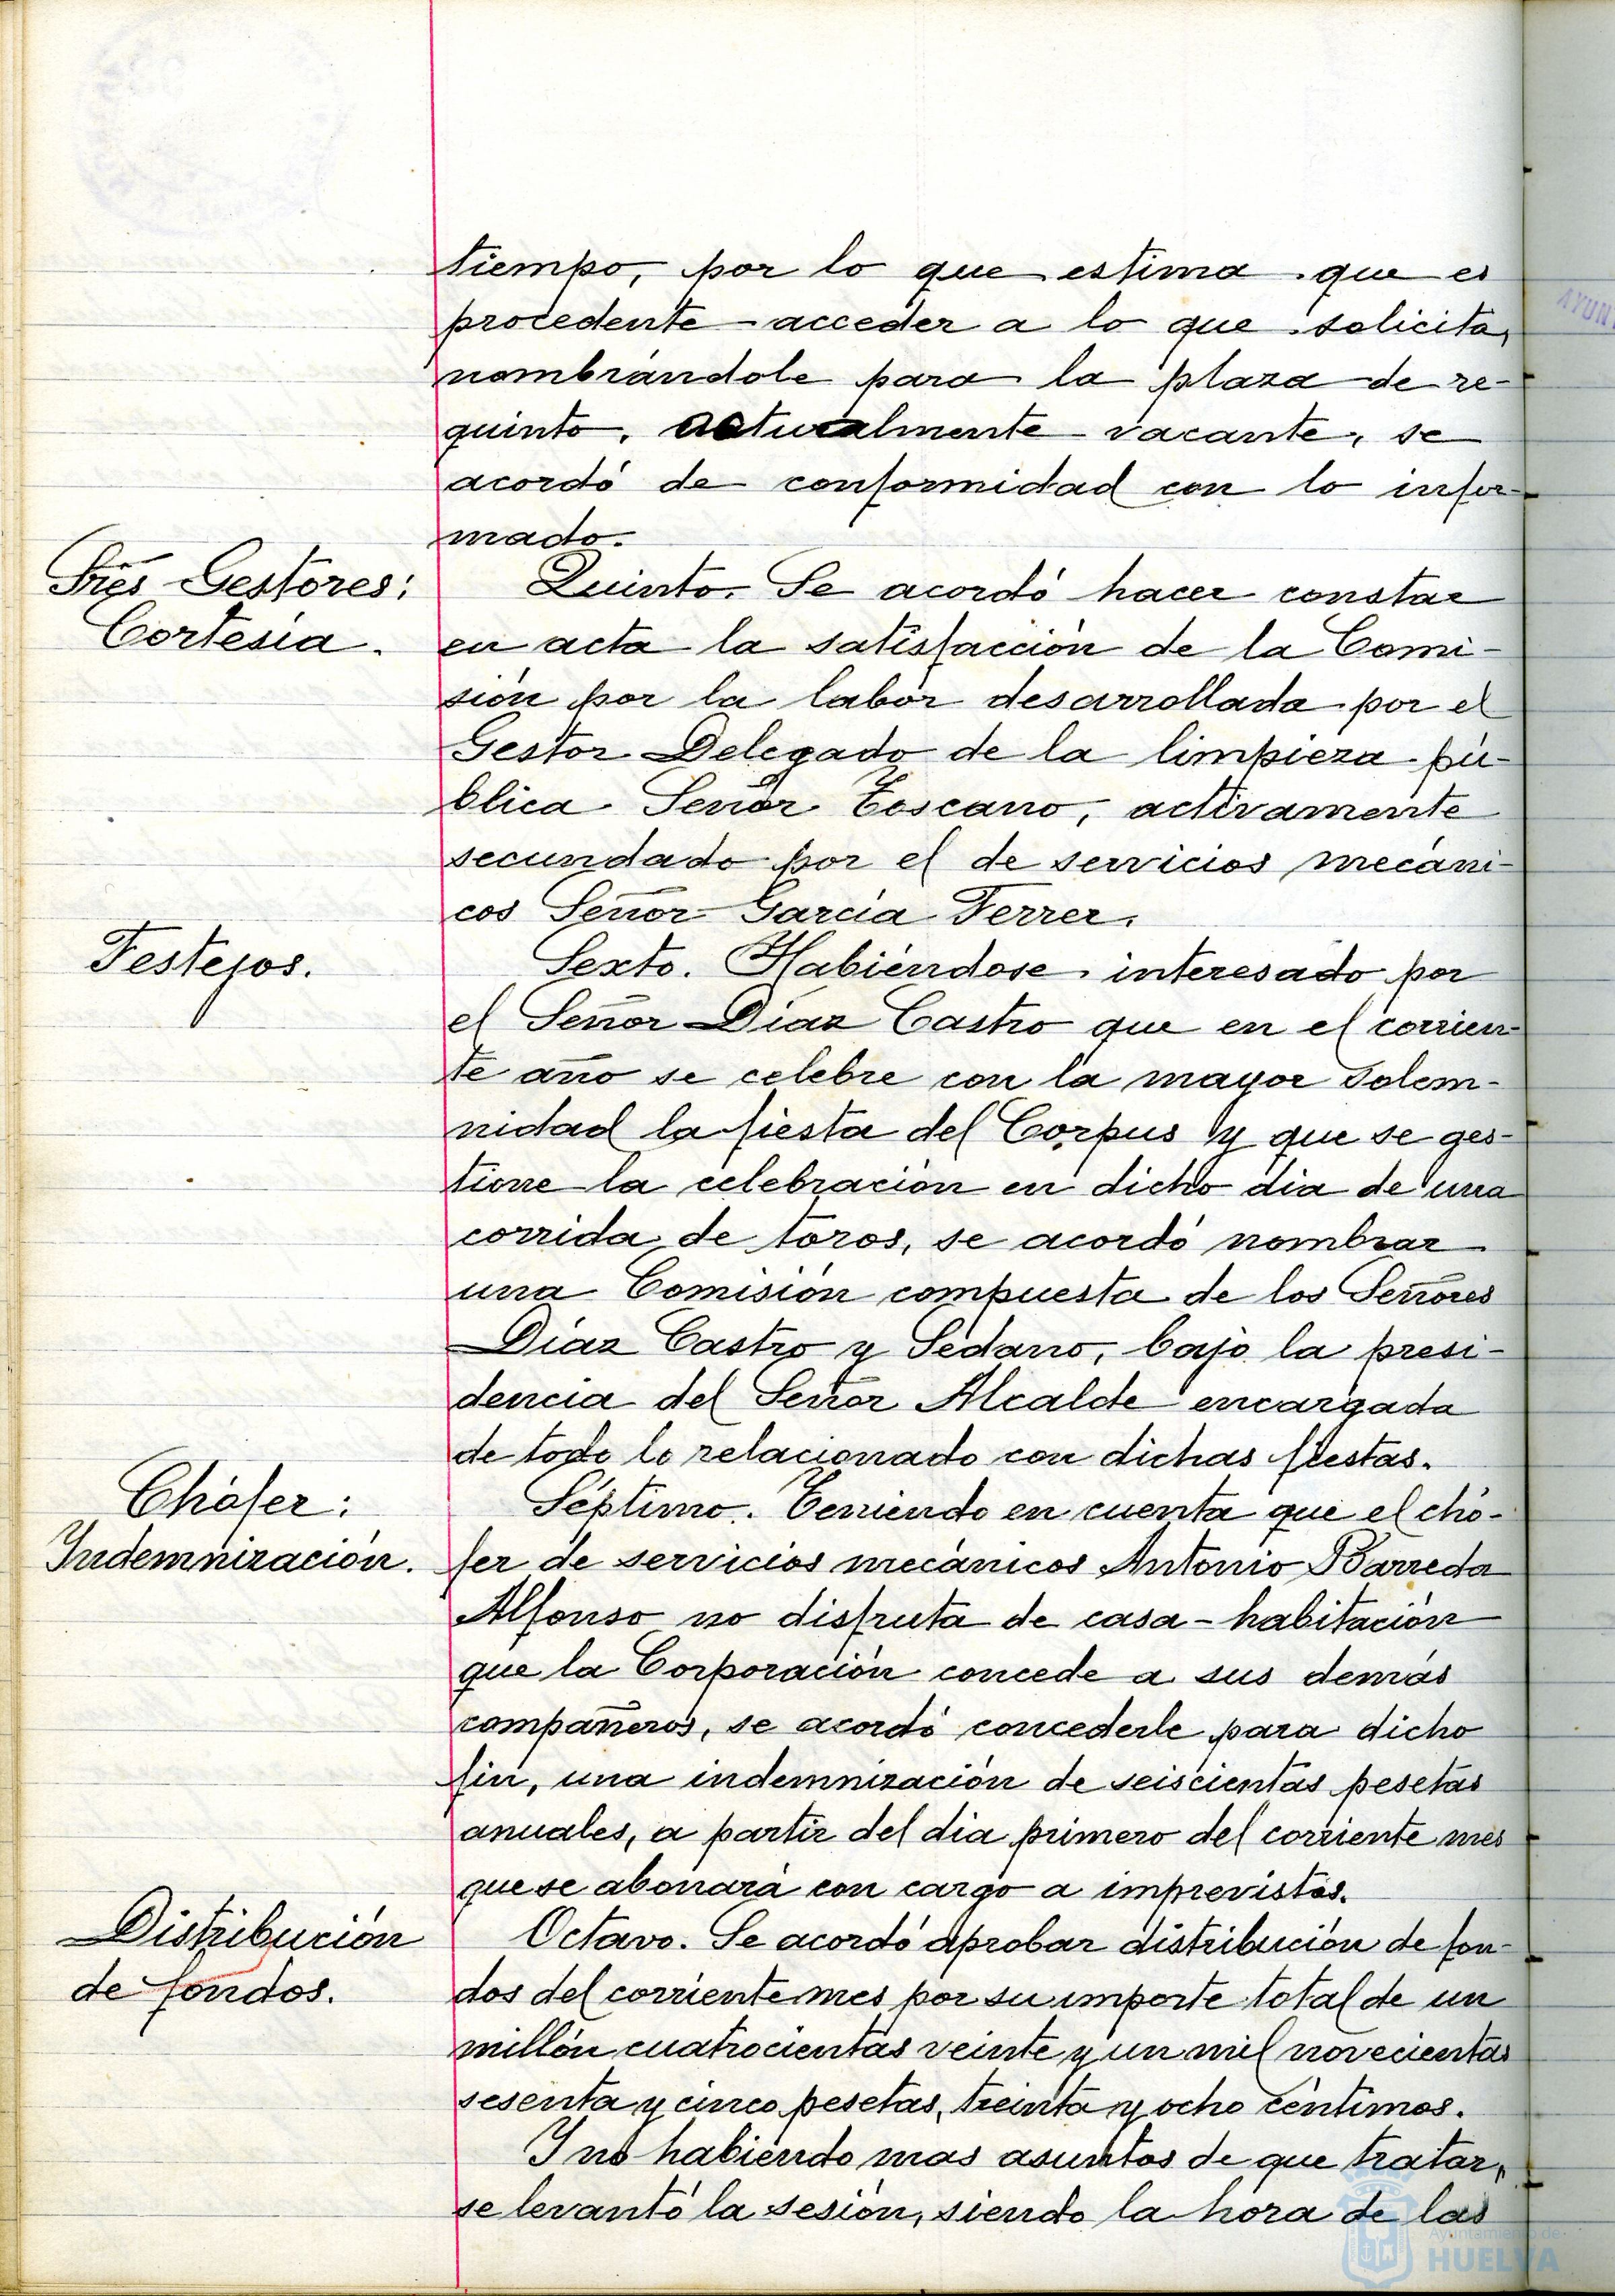 tiempo, por lo que estima que es
procedente acceder a lo que solicita,
nombrándole para la plaza de re-
quinto, actualmente vacante, se
acordó de conformidad con lo infor-
mado.
Sres Gestores:
Cortesía.
Quinto. Se acordó hacer constar
en acta la satisfacción de la Comi-
sión por la labor desarrollada por el
Gestor Delegado de la limpieza pú-
blica Señor Toscano, activamente
secundado por el de servicios mecáni-
cos Señor García Ferrer.
Festejos.
Sexto. Habiéndose interesado por
el Señor Díaz Castro que en el corrien-
te año se celebre con la mayor solem-
nidad la fiesta del Corpus y que se ges-
tione la celebración en dicho día de una
corrida de toros, se acordó nombrar
una Comisión compuesta de los Señores
Díaz Castro y Sedano, bajo la presi-
dencia del Señor Alcalde encargada
de todo lo relacionado con dichas fiestas.
Chófer:
Indemnización.
Séptimo. Teniendo en cuenta que el chó-
fer de servicios mecánicos Antonio Barreda
Alfonso no disfruta de casa-habitación
que la Corporación concede a sus demás
compañeros, se acordó concederle para dicho
fin, una indemnización de seiscientas pesetas
anuales, a partir del día primero del corriente mes
que se abonará con cargo a imprevistos.
Distribución
de fondos.
Octavo. Se acordó aprobar distribución de fon-
dos del corriente mes por su importe total de un
millón cuatrocientas veinte y un mil novecientas
sesenta y cinco pesetas, treinta y ocho céntimos.
Y no habiendo mas asuntos de que tratar,
se levantó la sesión, siendo la hora de las
AYUN
Ayuntamiento de
HUELVA